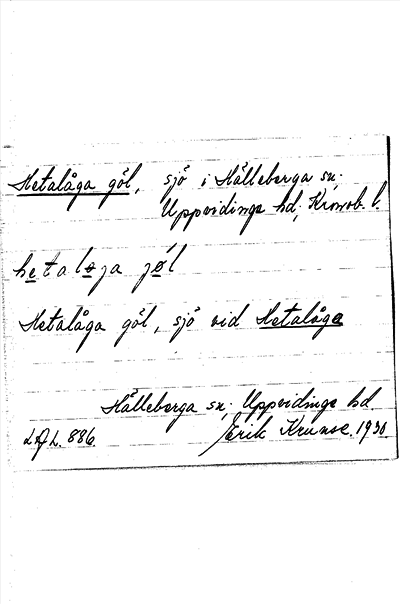 Hetalåga göl, sjö i Hälleberga sn;
Uppvidinge hd, Kronob. l.
hetaloga jøl
Hetalåga göl, sjö vid Hetalåga
Hälleberga sn; Uppvidinge hd
886. Erik Kruuse. 1930